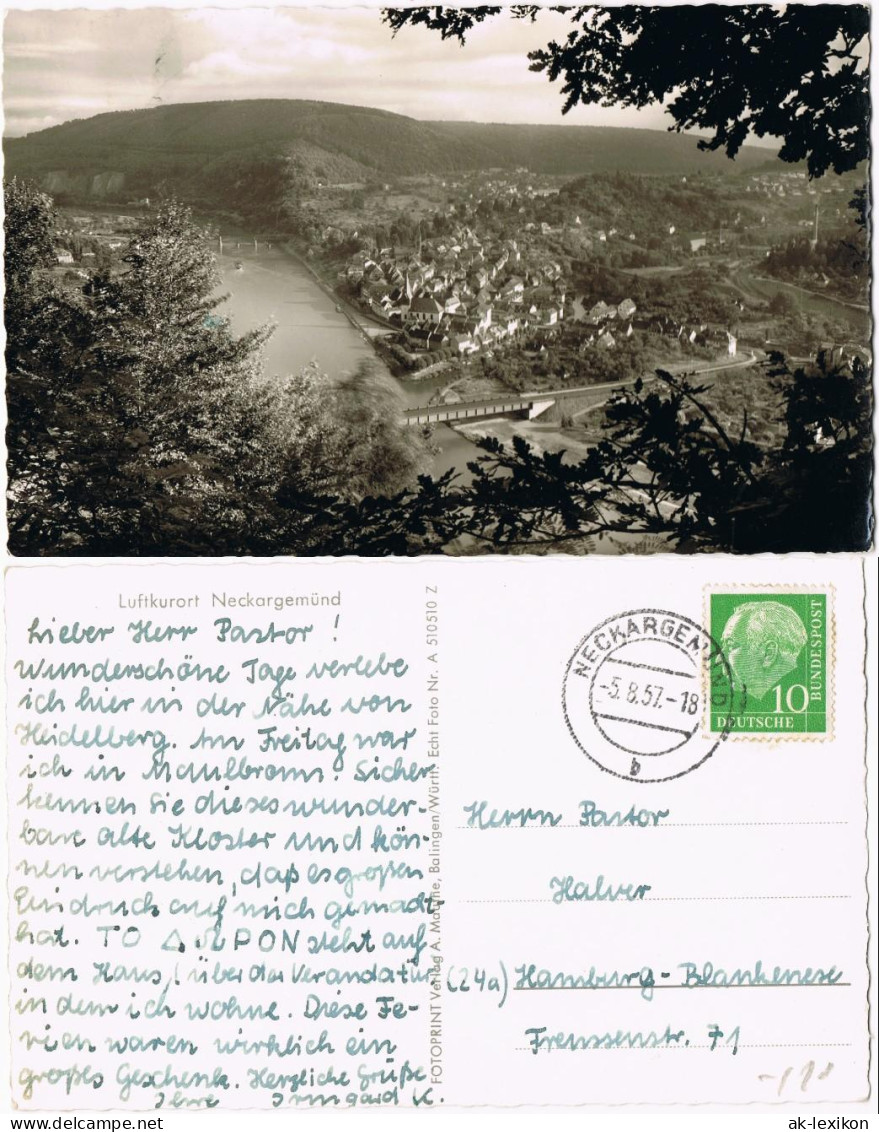 Luftkurort Neckargemünd
Lieber Herr Pastor!
Wunderschöne Tage verlebe
ich hier in der Nähe von
Heidelberg. Am Freitag war
ich in Maulbronn. Sicher
kennen Sie dieses wunder-
bare alte Kloster und kön-
nen verstehen, daß es großen
Eindruck auf mich gemacht
hat. ΤΟ ΔΩΡΟΝ steht auf
dem Haus, (über der Verandatür)
in dem ich wohne. Diese Fe-
rien waren wirklich ein
großes Geschenk. Herzliche Grüße
Ihre Irmgard K.
FOTOPRINT Verlag A. Balingen/Württ. Echt Foto Nr. A 510510 Z
NECKARGEMÜND
-5.8.57.-18
b
10
DEUTSCHE
BUNDESPOST
Herrn Pastor
Halver
(24a) Hamburg-Blankenese
Frenssenstr. 71
ak-lexikon